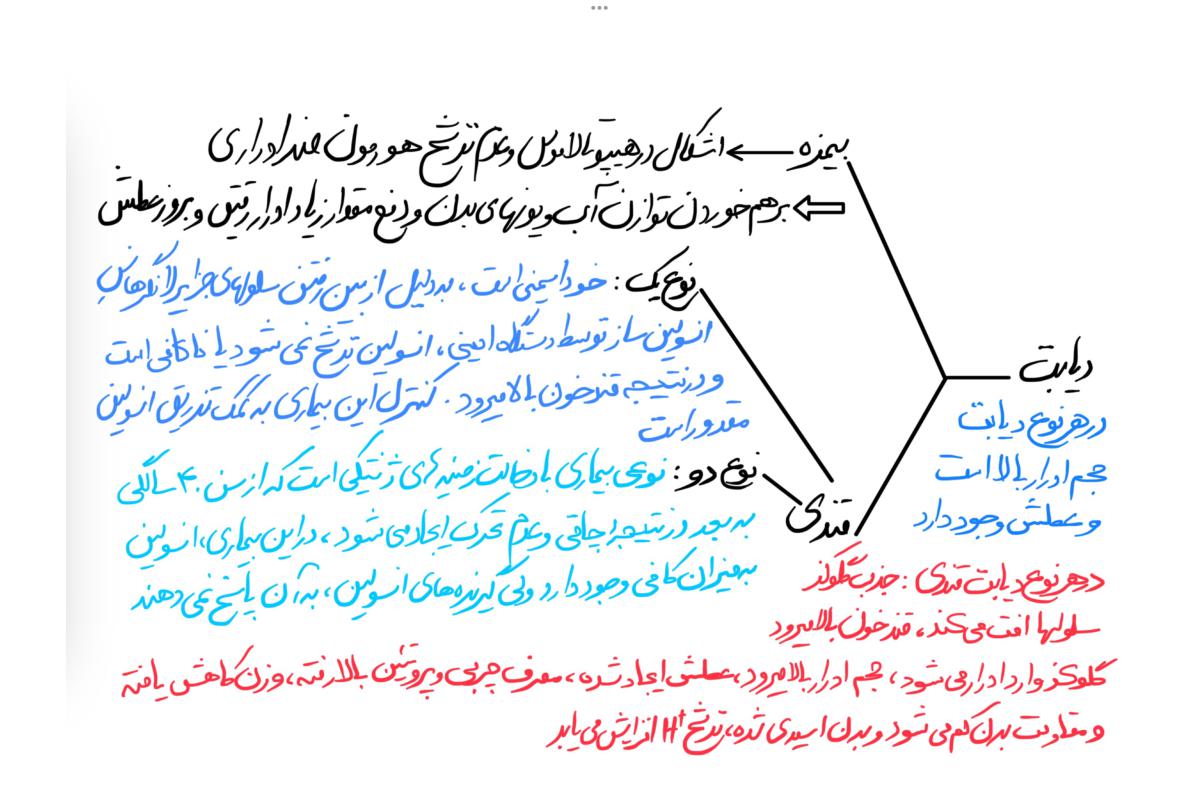 دیابت
در هر نوع دیابت
حجم ادرار بالا است
و عطش وجود دارد
بیمزه ← اشکال در هیپوتالاموس و عدم ترشح هورمون ضد ادراری
⇐ برهم خوردن توازن آب و یونهای بدن و دفع مقدار زیاد ادرار رقیق و بروز عطش
قندی
نوع یک : خود ایمنی است ، به دلیل از بین رفتن سلولهای جزایر لانگرهانس
انسولین ساز توسط دستگاه ایمنی ، انسولین ترشح نمی شود یا ناکافی است
و در نتیجه قند خون بالا میرود . کنترل این بیماری به کمک تزریق انسولین
مقدور است
نوع دو : نوعی بیماری با دخالت زمینه های ژنتیکی است که از سن ۴۰ سالگی
به بعد در نتیجه چاقی و عدم تحرک ایجاد می شود ، در این بیماری ، انسولین
به میزان کافی وجود دارد ولی گیرنده های انسولین ، به آن پاسخ نمی دهند
در هر نوع دیابت قندی : جذب گلوکز
سلولها افت می کند ، قند خون بالا میرود
گلوکز وارد ادرار می شود ، حجم ادرار بالا میرود ، عطش ایجاد شده ، مصرف چربی و پروتئین بالا رفته ، وزن کاهش یافته
و مقاومت بدن کم می شود و بدن اسیدی شده ، ترشح H⁺ افزایش می یابد